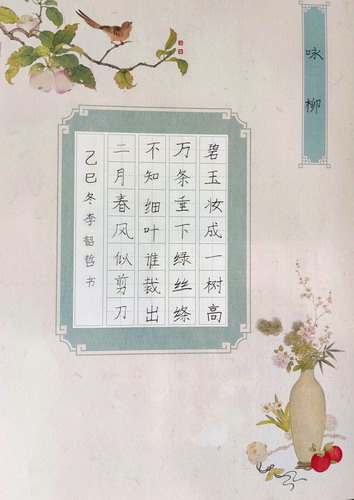 咏柳
碧玉妆成一树高
万条垂下绿丝绦
不知细叶谁裁出
二月春风似剪刀
乙巳冬李韶哲书